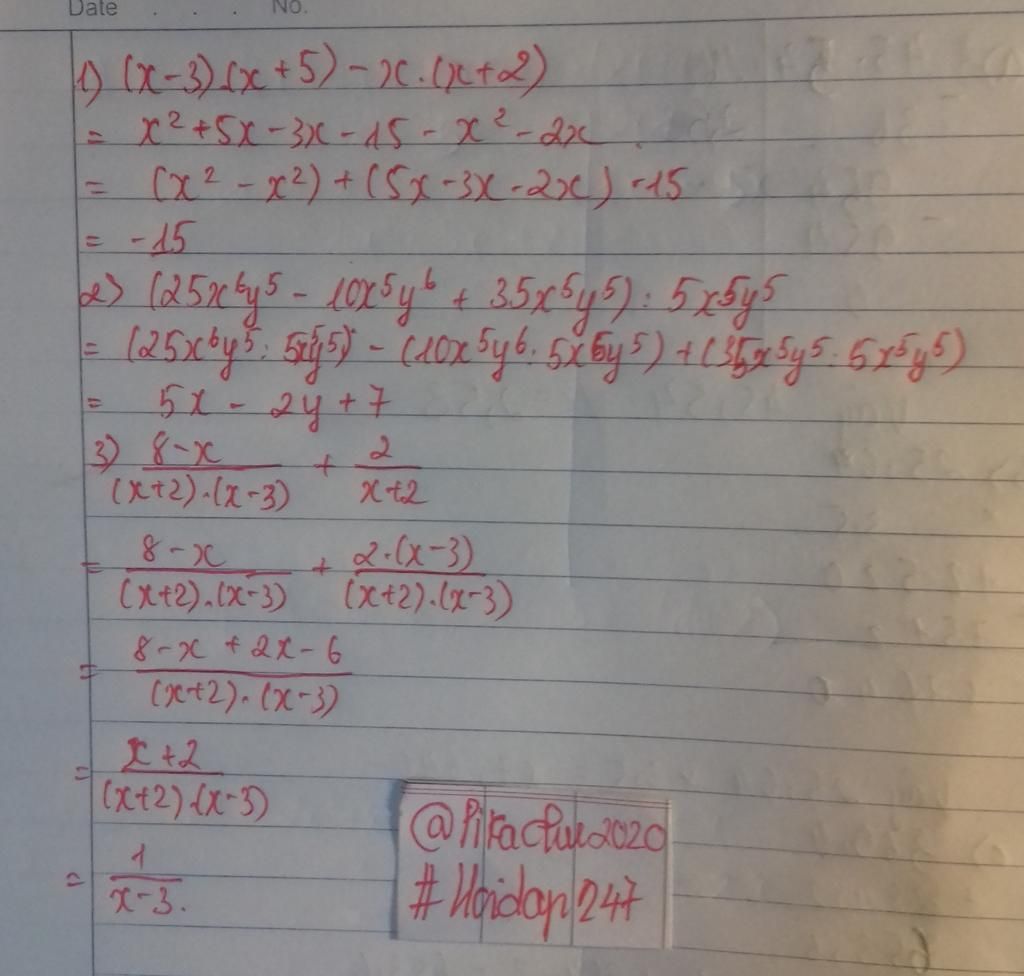 Date . . . No.
1) (x-3).(x+5)-x.(x+2)
= x²+5x-3x-15-x²-2x
= (x²-x²)+(5x-3x-2x)-15
= -15
2) (25x⁶y⁵ - 10x⁵y⁶ + 35x⁵y⁵) : 5x⁵y⁵
= (25x⁶y⁵ : 5x⁵y⁵) - (10x⁵y⁶ : 5x⁵y⁵) + (35x⁵y⁵ : 5x⁵y⁵)
= 5x - 2y + 7
3) (8-x)/((x+2).(x-3)) + 2/(x+2)
= (8-x)/((x+2).(x-3)) + (2.(x-3))/((x+2).(x-3))
= (8-x+2x-6)/((x+2).(x-3))
= (x+2)/((x+2).(x-3))
= 1/(x-3).
@Pikachuu2020
#Hoidap247